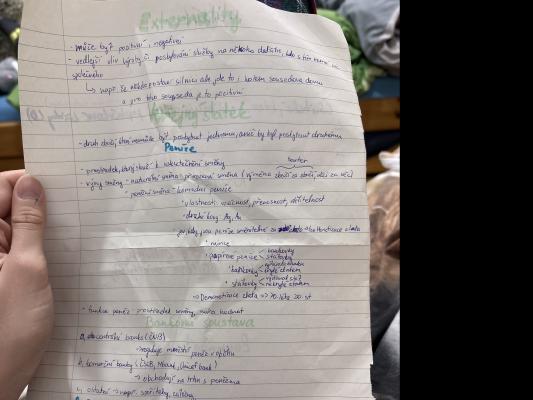 Externality
- může být pozitivní, negativní
- vedlejší vliv výroby či poskytování služby na někoho dalšího, kdo s tím nemá nic
společného
↳ např. že někdo postaví silnici ale jde to i kolem sousedova domu
a pro toho souseda je to pozitivní
Veřejný statek
- druh zboží, který nemůže být poskytnut jednomu, aniž by byl poskytnut druhému
Peníze
barter
- prostředek, který slouží k uskutečnění směny
- vývoj směny - naturální směna - (výměna zboží za zboží, věci za věci)
- peněžní směna - komoditní peníze
vlastnosti: vzácnost, přenosnost, dělitelnost
- drahé kovy Ag, Au
kdy jsou peníze směnitelné za
• mince
• papírové peníze
bankovky
státovky
• bankovky
• státovky
kryté zlatem
→ Demonetizace zlata => 70. léta 20. st
- funkce peněz: prostředek směny, míra hodnot
Bankovní soustava
a, centrální banka (ČNB)
→ reguluje množství peněz v oběhu
b, komerční banky (ČSOB, Moneta,
↳ obchodují na trhu s penězi
c, ostatní → např. spořitelny, záložny